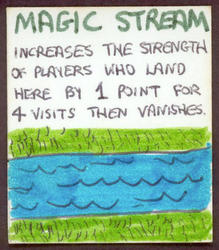 MAGIC STREAM
INCREASES THE STRENGTH
OF PLAYERS WHO LAND
HERE BY 1 POINT FOR
4 VISITS THEN VANISHES.